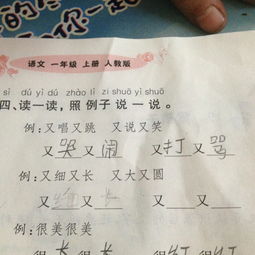 语文 一年级 上册 人教版
sì dú yì dú zhào lì zi shuō yì shuō
四、读一读，照 例子 说 一 说。
例：又唱又跳 又说又笑
又哭又闹 又打又骂
例：又细又长 又大又圆
又 又长 又___又___
例：很美很美